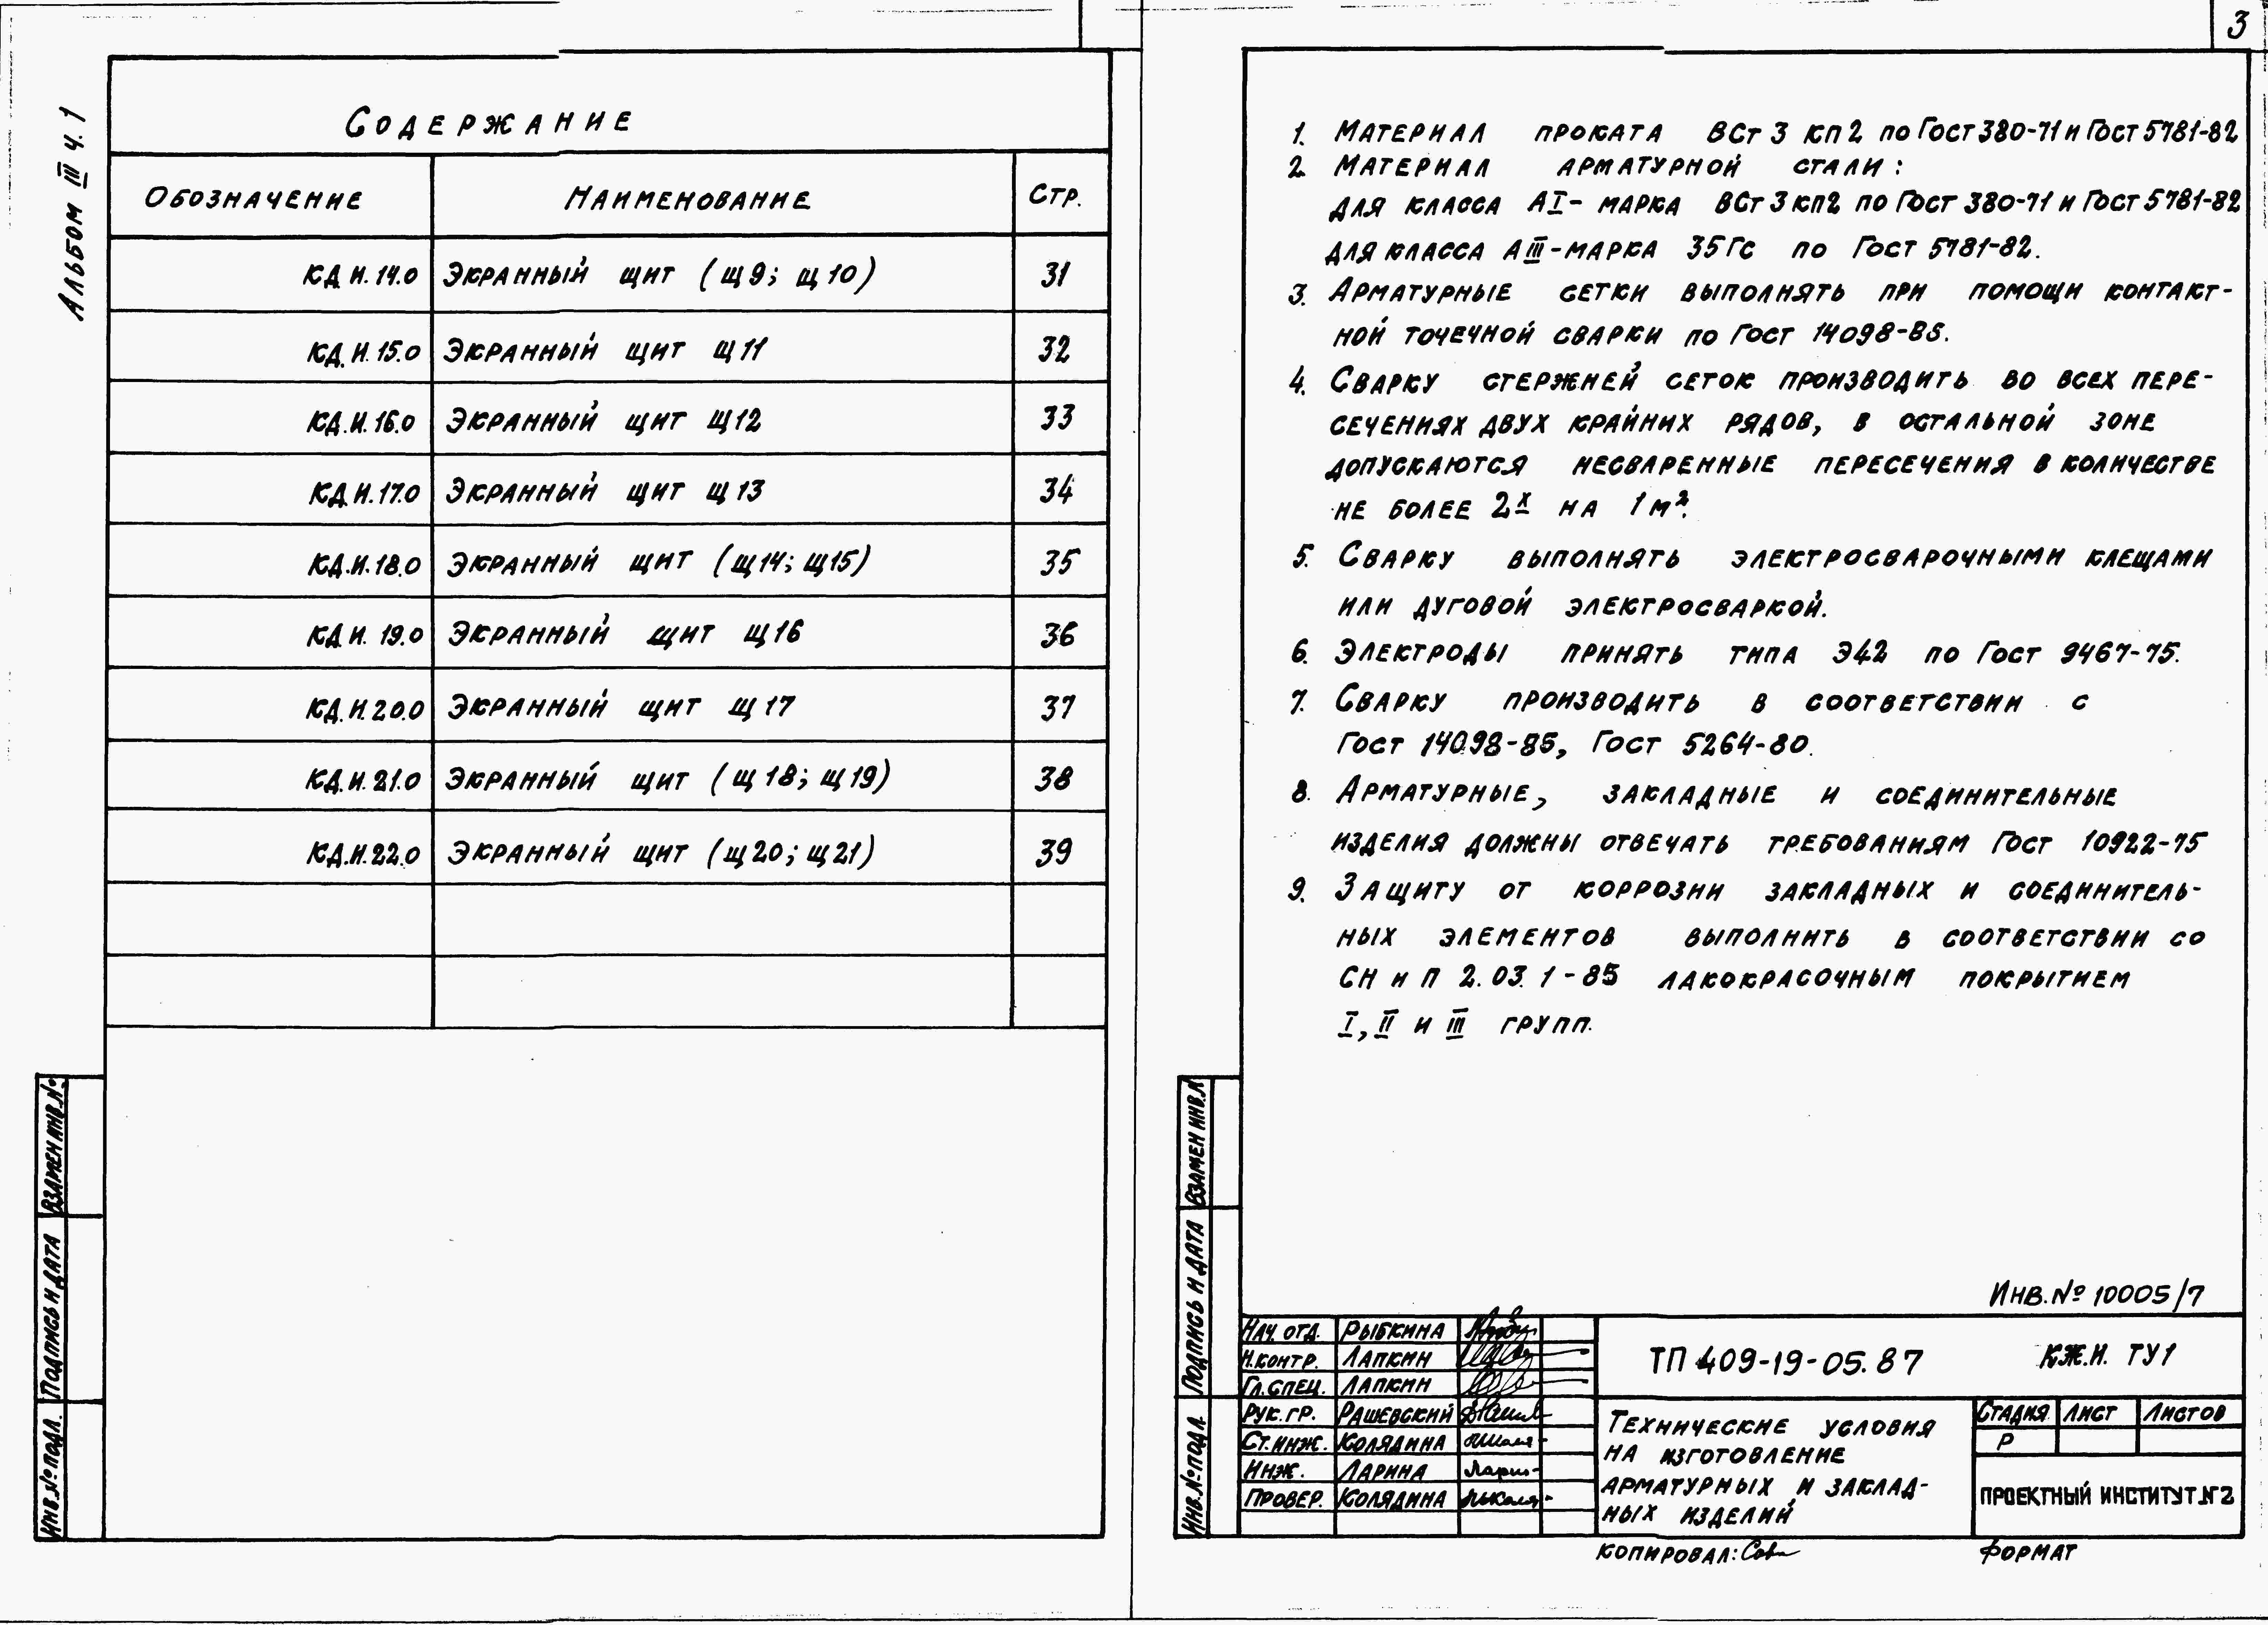 3
Альбом III ч. 1
Содержание
Обозначение Наименование Стр.
КД.И.14.0 Экранный щит (щ9; щ10) 31
КД.И.15.0 Экранный щит щ11 32
КД.И.16.0 Экранный щит щ12 33
КД.И.17.0 Экранный щит щ13 34
КД.И.18.0 Экранный щит (щ14; щ15) 35
КД.И.19.0 Экранный щит щ16 36
КД.И.20.0 Экранный щит щ17 37
КД.И.21.0 Экранный щит (щ18; щ19) 38
КД.И.22.0 Экранный щит (щ20; щ21) 39
Взамен инв.№
Подпись и дата
Инв.№ подл.
1. Материал проката ВСт 3 кп 2 по Гост 380-71 и Гост 5781-82
2. Материал арматурной стали:
для класса АI- марка ВСт 3 кп2 по Гост 380-71 и Гост 5781-82
для класса АIII-марка 35ГС по Гост 5781-82.
3. Арматурные сетки выполнять при помощи контакт-
ной точечной сварки по Гост 14098-85.
4. Сварку стержней сеток производить во всех пере-
сечениях двух крайних рядов, в остальной зоне
допускаются несваренные пересечения в количестве
не более 2х на 1м².
5. Сварку выполнять электросварочными клещами
или дуговой электросваркой.
6. Электроды принять типа Э42 по Гост 9467-75.
7. Сварку производить в соответствии с
Гост 14098-85, Гост 5264-80.
8. Арматурные, закладные и соединительные
изделия должны отвечать требованиям Гост 10922-75
9. Защиту от коррозии закладных и соединитель-
ных элементов выполнить в соответствии со
СН и П 2.03.1-85 лакокрасочным покрытием
I, II и III групп.
Взамен инв.№
Подпись и дата
Инв.№ подл.
Инв.№ 10005/7
Нач. отд. Рыбкина
Н.контр. Лапкин
Гл.спец. Лапкин
Рук.гр. Рашевский
Ст.инж. Колядина
Инж. Ларина
Провер. Колядина
ТП 409-19-05.87 КЖ.И. ТУ1
Технические условия
на изготовление
арматурных и заклад-
ных изделий
Стадия Лист Листов
Р
Проектный институт №2
Копировал:
Формат